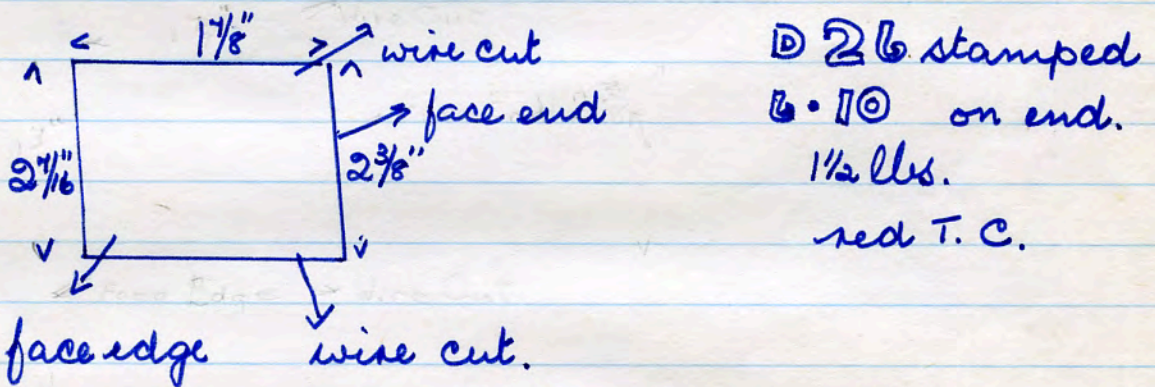 1 7/8"
wire cut
face end
2 7/16"
2 3/8"
face edge
wire cut.
D 26 stamped
6·10 on end.
1 1/2 lbs.
red T. C.